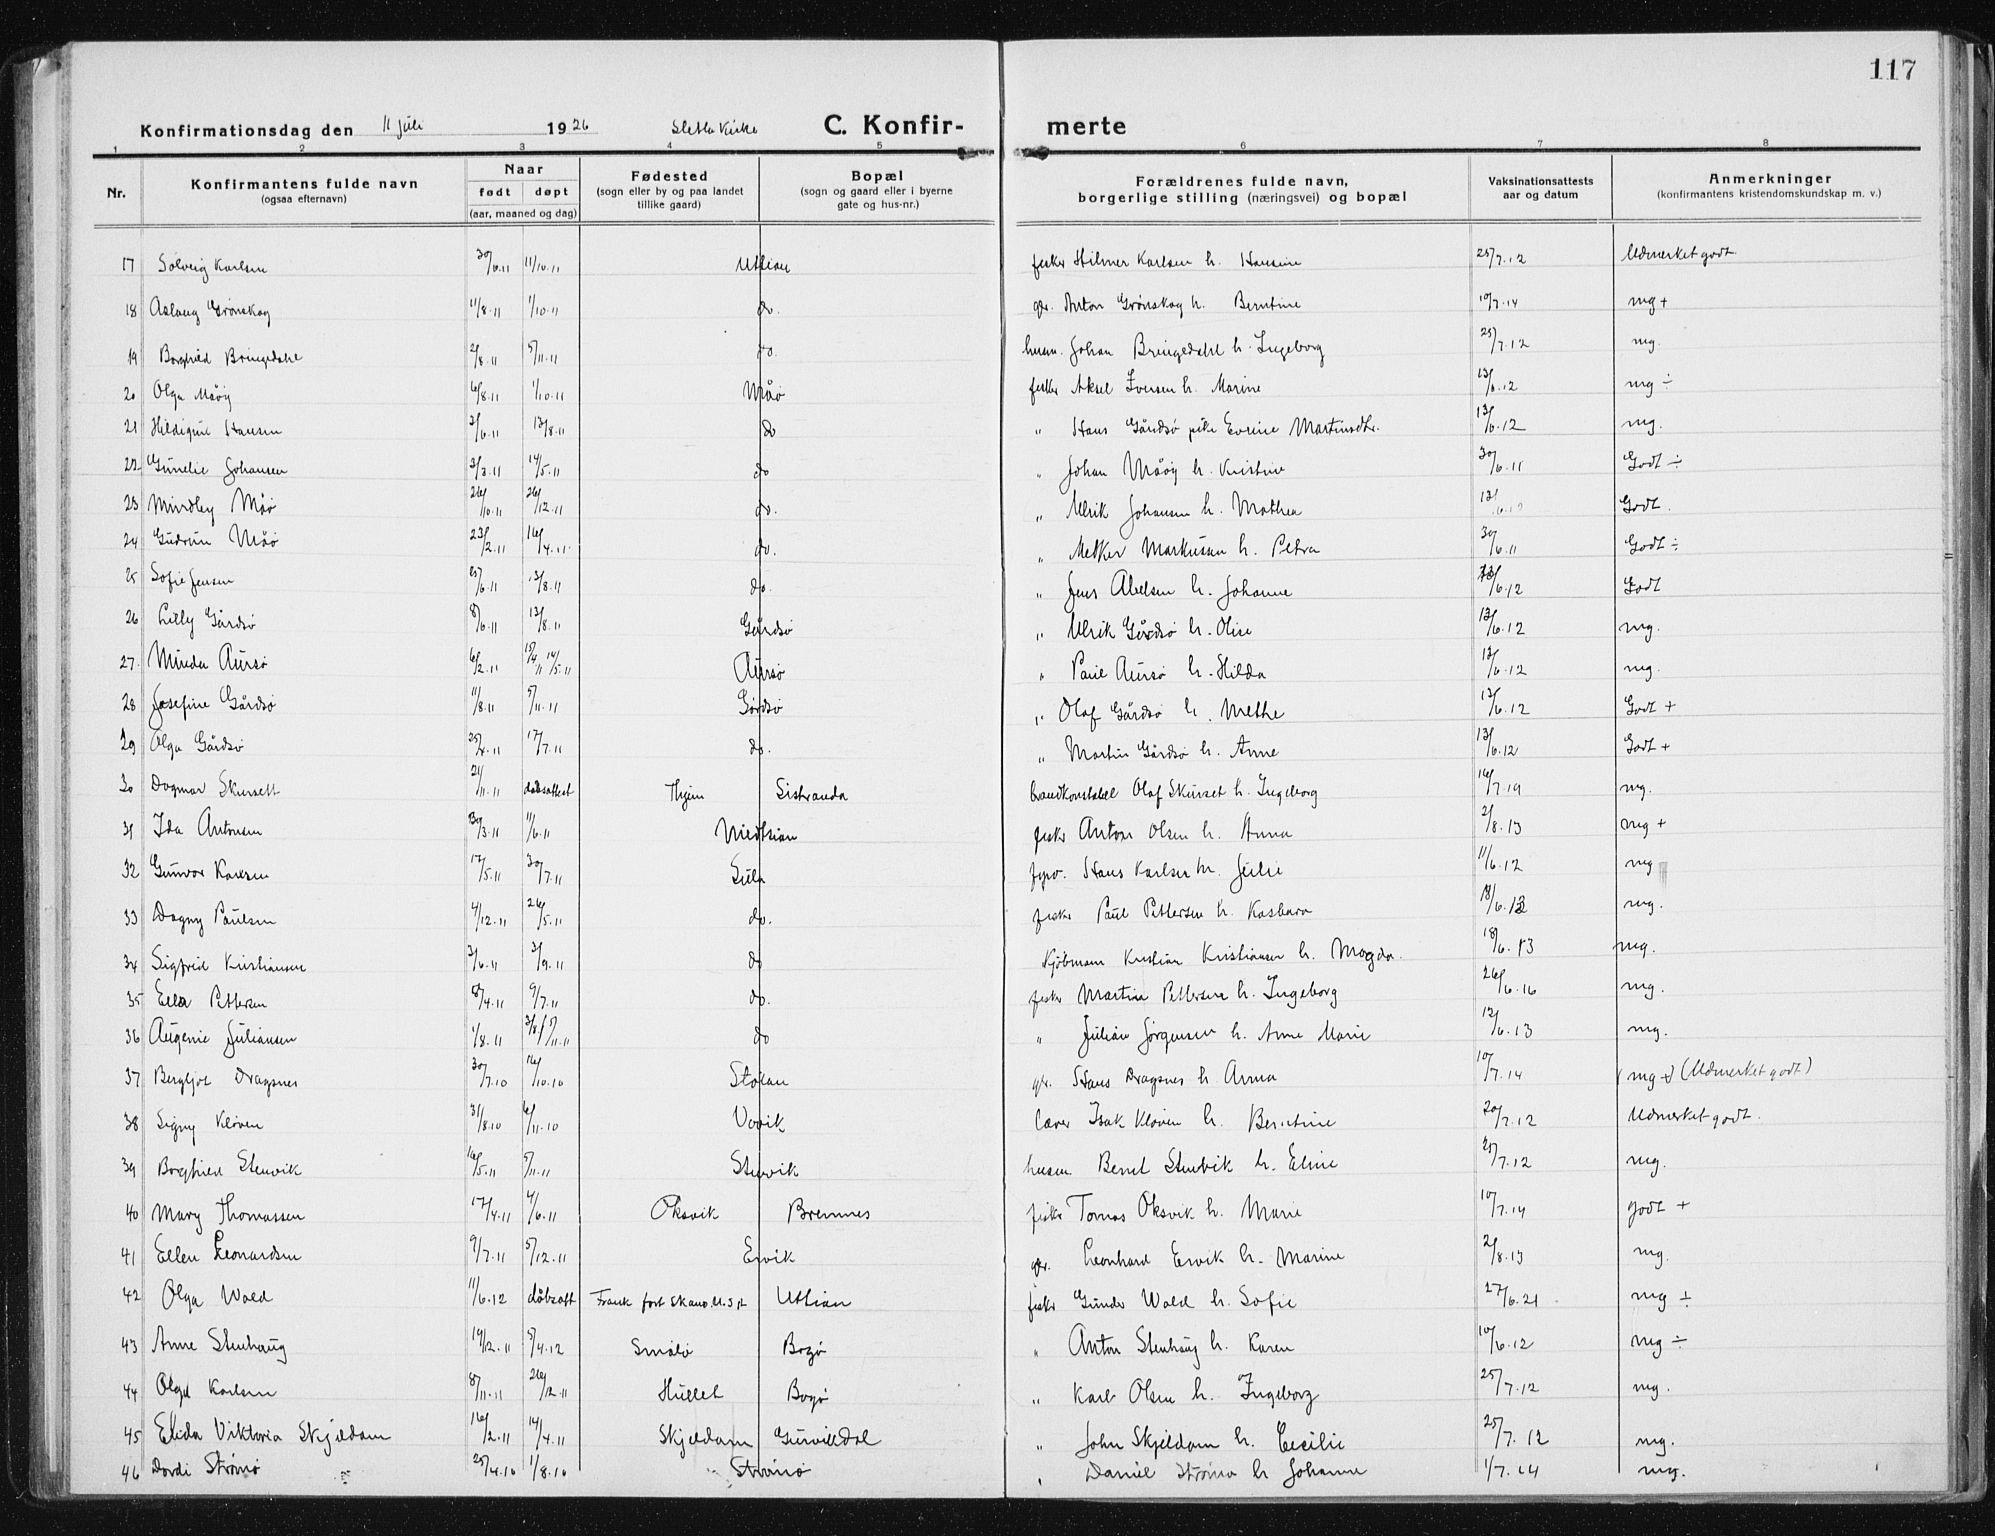 117
Konfirmationsdag den 11 juli 1926 Sletta Kirke C. Konfir- merte
1 2 3 4 5 6 7 8
Nr. Konfirmantens fulde navn (ogsaa efternavn) Naar født døpt (aar, maaned og dag) Fødested (sogn eller by og paa landet tillike gaard) Bopæl (sogn og gaard eller i byerne gate og hus-nr.) Forældrenes fulde navn, borgerlige stilling (næringsvei) og bopæl Vaksinationsattests aar og datum Anmerkninger (konfirmantens kristendomskundskap m. v.)
17 Solveig Karlsen 30/6.11 11/10.11 Uttian fisker Hilmer Karlsen h. Hansine 25/7.12 Udmerket godt.
18 Aslaug Grønskag 11/8.11 1/10.11 do. gbr. Anton Grønskag h. Berntine 10/7.14 mg +
19 Borghild Bringedahl 2/8.11 5/11.11 do. husm. Johan Bringedahl h. Ingeborg 25/7.12 mg.
20 Olga Måøy 6/8.11 1/10.11 Måø fisker Aksel Iversen h. Marine 13/6.12 mg ÷
21 Hansen 3/6.11 13/8.11 do " Hans Gårdsø pike Evrine Martinsdtr. 13/6.12 mg.
22 Gunelie Johansen 3/3.11 14/5.11 do " Johan Måøy h. Kristine 30/6.11 Godt ÷
23 Mindley Måø 26/10.11 26/12.11 do. " Ulrik Johansen h. Mathea Godt.
24 Gudrun Måø 23/2.11 16/4.11 do. " Metker Markussen h. Petra 30/6.11 Godt ÷
25 Sofie Jensen 25/6.11 13/8.11 do. " Jens Abelsen h. Johanne 13/6.12 Godt
26 Lilly Gårdsø 8/6.11 13/8.11 Gårdsø " Ulrik Gårdsø h. Olise 13/6.12 mg.
27. Minda Aursø 6/2.11 14/5.11 Aursø " Paul Aursø h. Hilda 13/6.12 mg.
28 Josefine Gårdsø 11/8.11 5/11.11 Gårdsø " Olaf Gårdsø h. Methe 13/6.12 Godt +
29 Olga Gårdsø 17/7.11 do. " Martin Gårdsø h. Anne 13/6.12 Godt +
30 Dagmar Skursett 21/11.11 dåbsattest Thjem Sistranda brandkonstabel Olaf Skurset h. Ingeborg 16/7.19 mg.
31 Ida Antonsen 30/3.11 11/6.11 fisker Anton Olsen h. Anna 2/8.13 mg +
32 Gunvor Karlsen 17/5.11 30/7.11 Sula fyrv. Hans Karlsen h. Julie 11/6.12 mg
33 Dagny Paulsen 4/12.11 26/5.11 do. fisker Paul Pettersen h. Kasbara mg.
34 Sigfrid Kristiansen 3/6.11 3/9.11 do Kjøbmann Kristian Kristiansen h. Magda. 18/6.13 mg.
35 Ella Pettersen 8/4.11 9/7.11 do. fisker Martin Pettersen h. Ingeborg 26/6.16 mg.
36 Augenie Juliansen 1/8.11 3/8 5/11.11 do " Julian Jørgensen h. Anne Marie 12/6.13 mg.
37 Bergljot Dragsnes 30/7.10 16/10.10 Stølan gbr. Hans Dragsnes h Anna 10/7.14 (mg +) (Udmerket godt)
38 Signy Kløven 31/8.10 6/11.10 Vavik lærer Isak Kløven h. Berntine 20/7.12 Udmerket godt.
39 Borghild Stenvik 16/5.11 5/11.11 Stenvik husm Bernt Stenvik h. Eline 25/7.12 mg.
40 Mary Thomassen 17/4.11 4/6.11 Oksvik Bremnes fisker Tomas Oksvik h. Marie 10/7.14 godt +
41 Ellen Leonardsen 9/7.11 5/12.11 Ervik gbr. Leonhard Ervik h. Marine 2/8.13 mg.
42 Olga Wold 11/6.12 dåbsatt Frank fort Skano. U.S.A Uttian fisker Gunder Wold h. Sofie 27/6.21 mg ÷
43 Anne Stenhaug 19/2.11 5/4.12 Smålø Bogø " Anton Stenhaug h. Karen 10/6.12 mg ÷
44 Olga Karlsen 8/11.11 26/12.11 Hullet Bogø " Karl Olsen h. Ingeborg 25/7.12 mg.
45 Elida Viktoria Skjeldam 16/2.11 14/4.11 Skjeldam Gurvikdal " John Skjeldam h. Cecilie 25/7.12 mg.
46 Dordi Strømø 25/4.10 1/8.10 Strømø " Daniel Strømø h Johanne 1/7.14 mg.